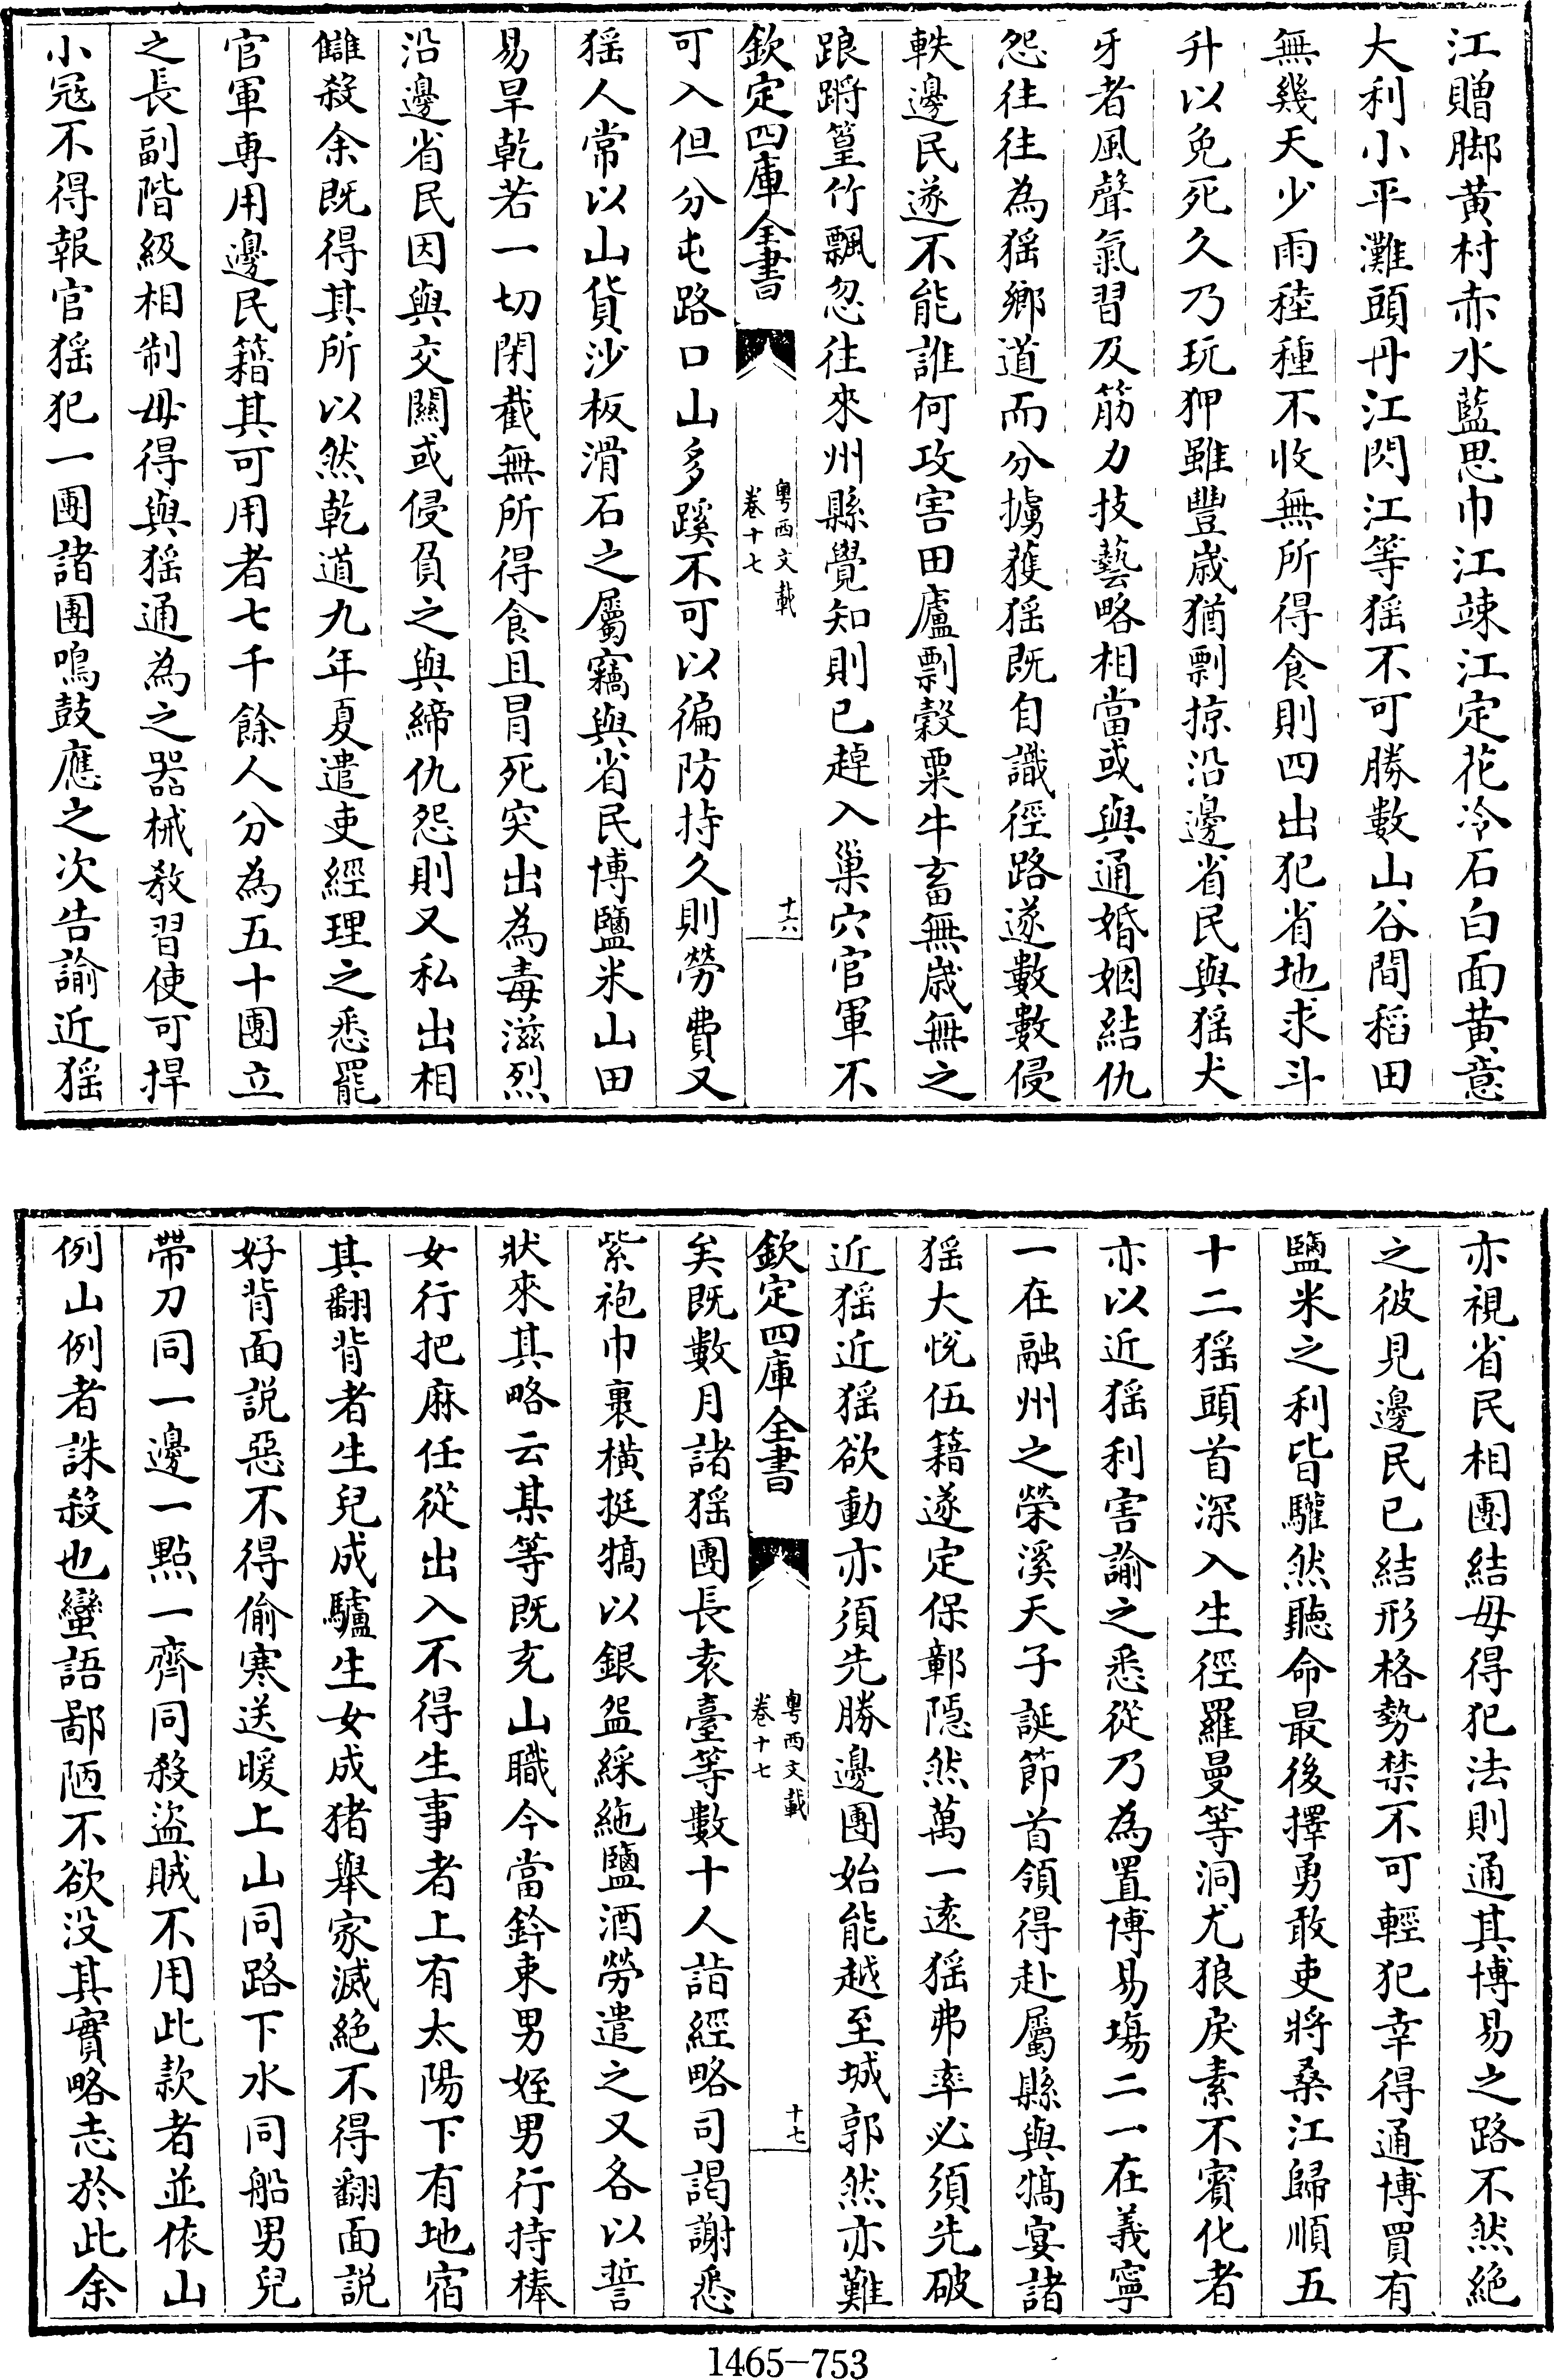 江贈脚黄村赤水藍思巾江竦江定花冷石白面黄意
大利小平灘頭丹江閃江等猺不可勝數山谷間稻田
無幾天少雨稑種不收無所得食則四出犯省地求斗
升以免死久乃玩狎雖豐歲猶剽掠沿邊省民與猺犬
牙者風聲氣習及筋力技藝略相當或與通婚姻結仇
怨往往為猺鄉道而分擄獲猺既自識徑路遂數數侵
軼邊民遂不能誰何攻害田廬剽穀粟牛畜無歲無之
踉蹡篁竹飄忽往來州縣覺知則已趠入巢穴官軍不
欽定四庫全書
粤西文載
卷十七
十六
可入但分屯路口山多蹊不可以徧防持久則勞費又
猺人常以山貨沙板滑石之屬竊與省民博鹽米山田
易旱乾若一切閉截無所得食且冒死突出為毒滋烈
沿邊省民因與交關或侵負之與締仇怨則又私出相
讎殺余既得其所以然乾道九年夏遣吏經理之悉罷
官軍専用邊民籍其可用者七千餘人分為五十團立
之長副階級相制毋得與猺通為之器械教習使可捍
小冦不得報官猺犯一團諸團鳴鼓應之次告諭近猺
亦視省民相團結毋得犯法則通其博易之路不然絶
之彼見邊民已結形格勢禁不可輕犯幸得通博買有
鹽米之利皆驩然聽命最後擇勇敢吏將桑江歸順五
十二猺頭首深入生徑羅曼等洞尤狼戾素不賓化者
亦以近猺利害諭之悉從乃為置博易塲二一在義寧
一在融州之榮溪天子誕節首領得赴屬縣與犒宴諸
猺大悅伍籍遂定保鄣隱然萬一逺猺弗率必須先破
近猺近猺欲動亦須先勝邊團始能越至城郭然亦難
欽定四庫全書
粤西文載
卷十七
十七
矣既數月諸猺團長袁臺等數十人詣經略司謁謝悉
紫袍巾裹橫挺犒以銀盌綵絁鹽酒勞遣之又各以誓
狀來其略云某等既充山職今當鈐束男姪男行持棒
女行把麻任從出入不得生事者上有太陽下有地宿
其翻背者生兒成驢生女成猪舉家滅絶不得翻面説
好背面説惡不得偷寒送暖上山同路下水同船男兒
帶刀同一邊一點一齊同殺盜賊不用此款者並依山
例山例者誅殺也蠻語鄙陋不欲没其實略志於此余
1465-753